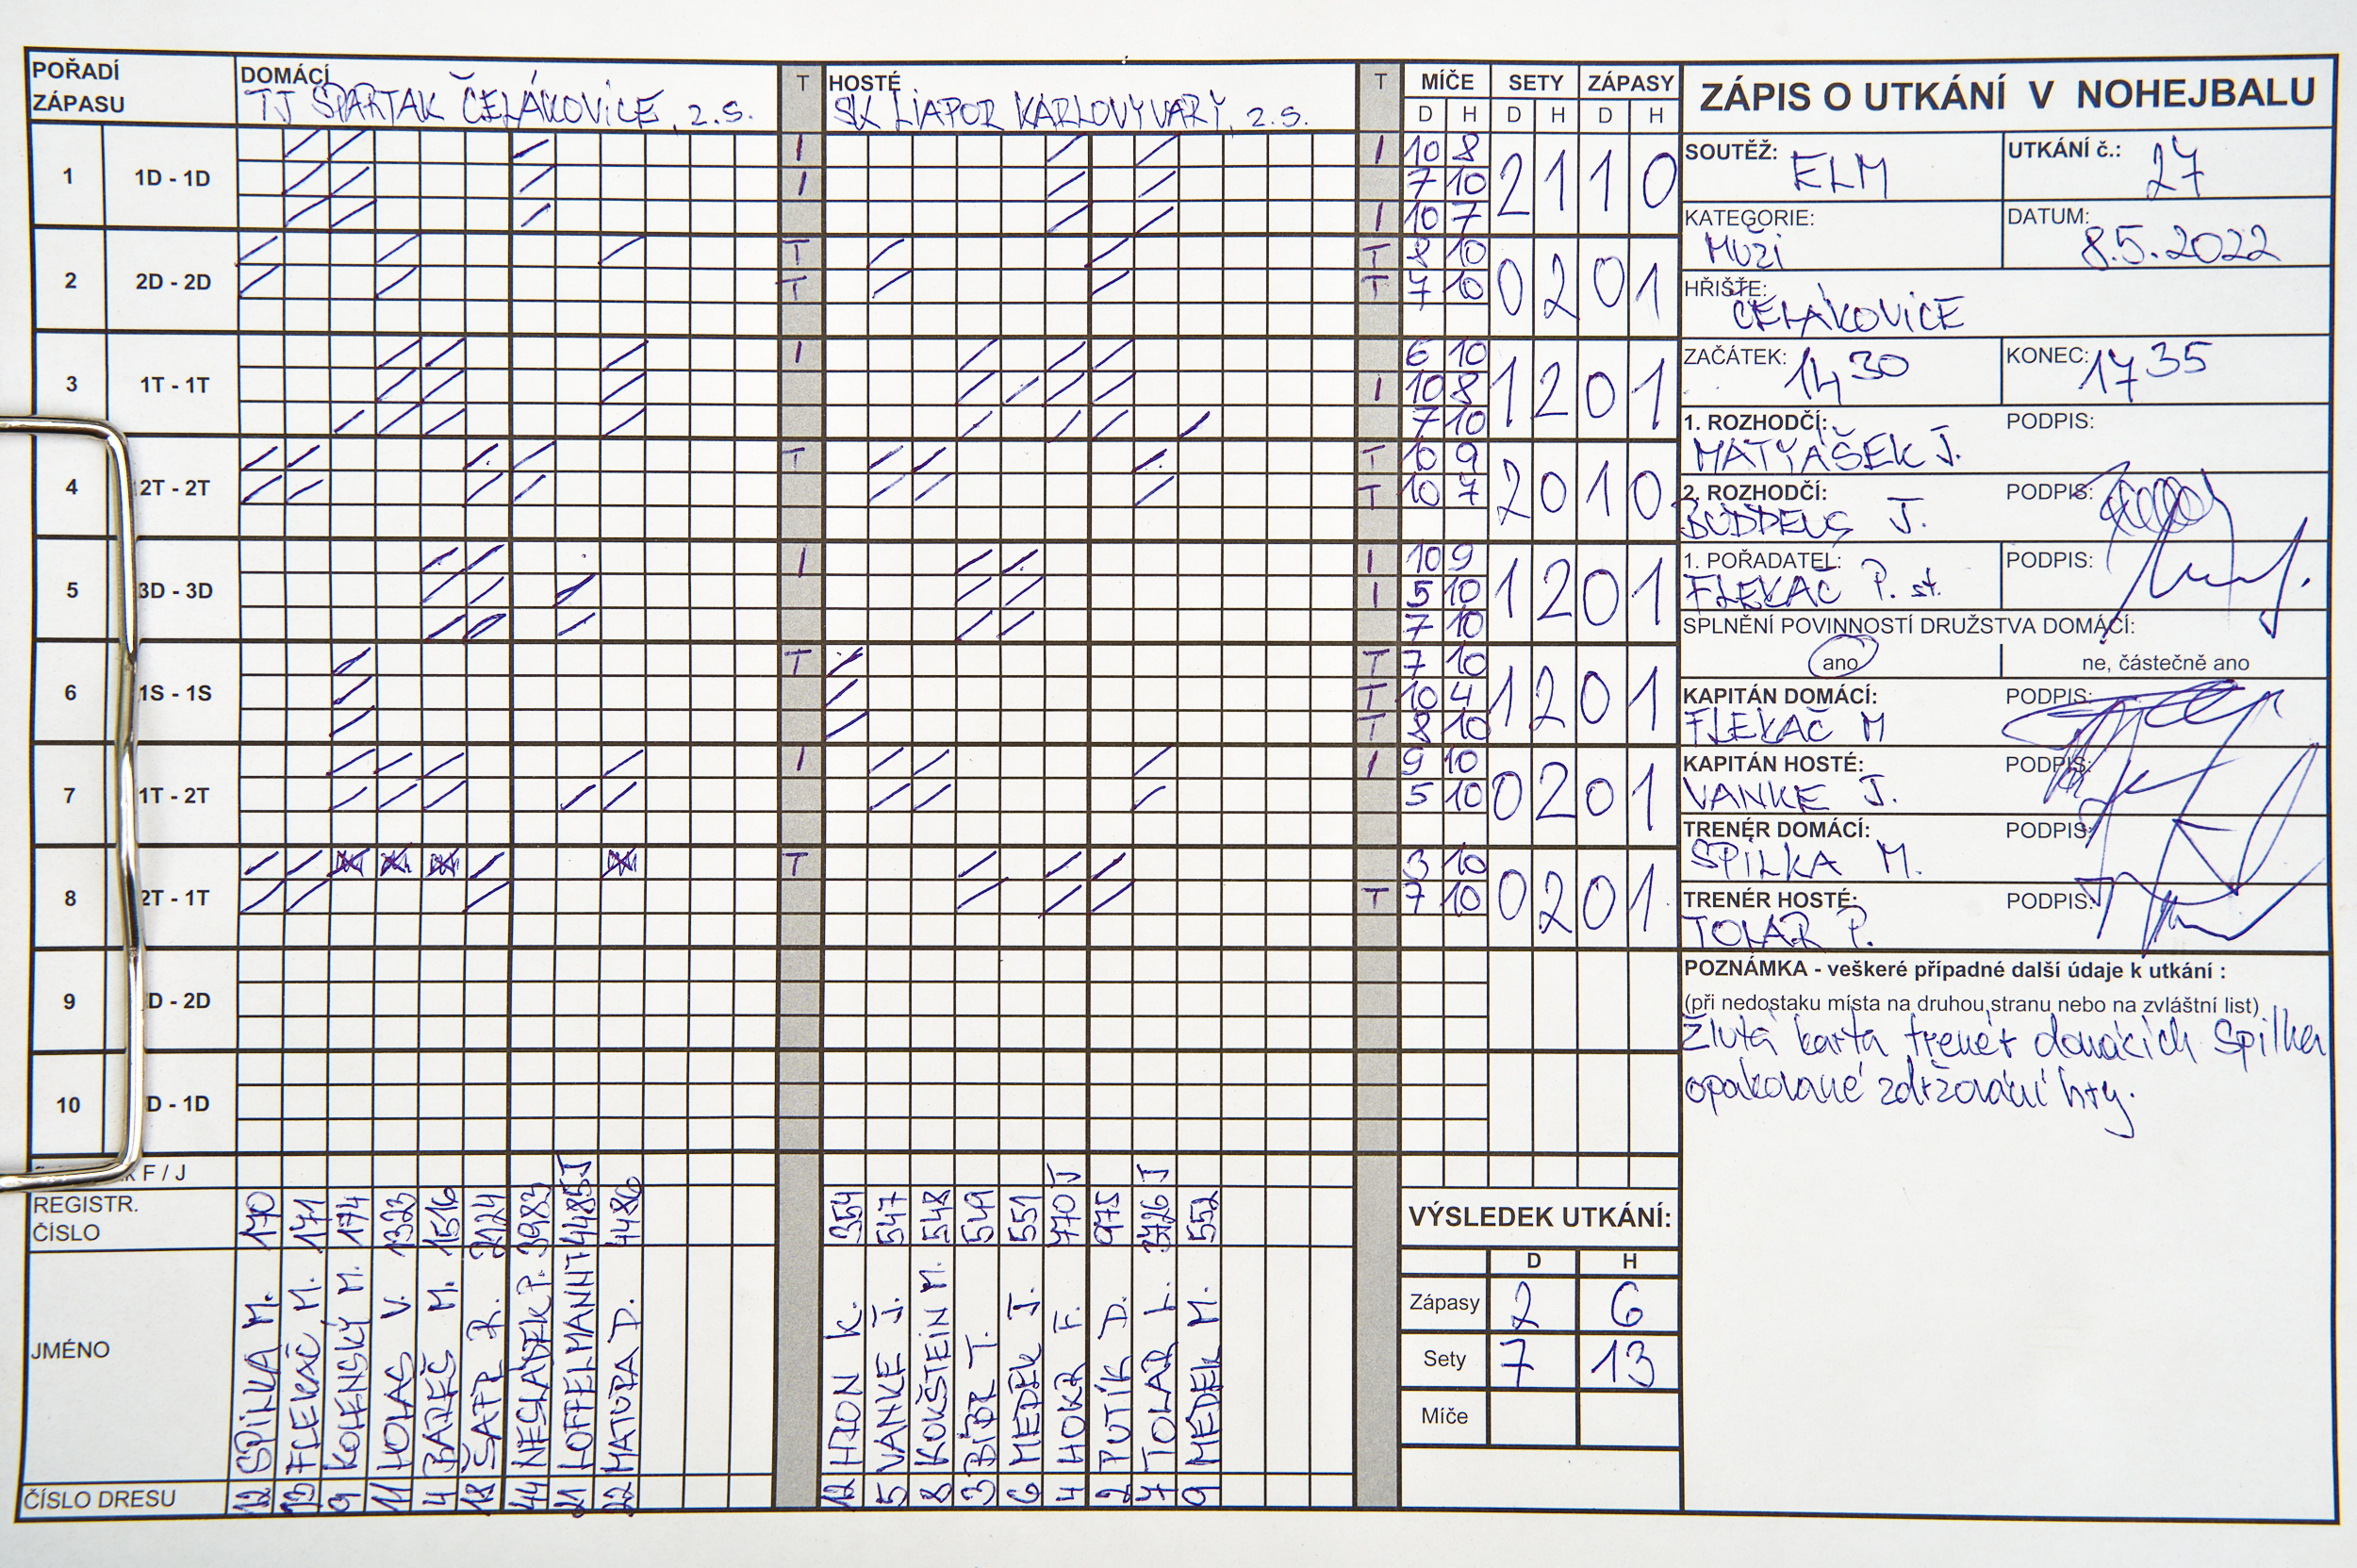 POŘADÍ ZÁPASU
DOMÁCÍ TJ SPARTAK ČELÁKOVICE, 2.S.
T
HOSTÉ SK LIAPOR KARLOVY VARY, 2.S.
T
MÍČE SETY ZÁPASY
D H D H D H
1 1D - 1D I I I I 10 8 7 10 10 7 2 1 1 0
2 2D - 2D T T T T 8 10 7 10 0 2 0 1
3 1T - 1T I I 6 10 10 8 7 10 1 2 0 1
4 2T - 2T T T T 10 9 10 7 2 0 1 0
5 3D - 3D I I I 10 9 5 10 7 10 1 2 0 1
6 1S - 1S T T T T 7 10 10 4 8 10 1 2 0 1
7 1T - 2T I I 9 10 5 10 0 2 0 1
8 2T - 1T T T 3 10 7 10 0 2 0 1
9 D - 2D
10 D - 1D
F / J
REGISTR. ČÍSLO
170 171 174 1323 1516 2124 3983 4485J 4486
354 547 548 549 551 770J 975 3726J 552
JMÉNO
SPILKA M. FLEKAČ M. KOLENSKÝ M. HOLAS V. BAREŠ M. ŠAFR R. NESLÁDEK P. LOFFELMANN T MATURA D.
HRON K. VANKE J. KOKŠTEIN M. BÍBR T. MEDEK J. HOKR F. PUTÍK D. TOLAR L. MEDEK M.
ČÍSLO DRESU
12 13 9 11 4 18 44 21 22
12 5 8 3 6 4 2 7 9
VÝSLEDEK UTKÁNÍ:
D H
Zápasy 2 6
Sety 7 13
Míče
ZÁPIS O UTKÁNÍ V NOHEJBALU
SOUTĚŽ: ELM
UTKÁNÍ č.: 27
KATEGORIE: MUŽI
DATUM: 8.5.2022
HŘIŠTĚ: ČELÁKOVICE
ZAČÁTEK: 14 30
KONEC: 17 35
1. ROZHODČÍ: PODPIS:
MATYÁŠEK J.
2. ROZHODČÍ: PODPIS:
J.
1. POŘADATEL: PODPIS:
FLEKAČ P. st.
SPLNĚNÍ POVINNOSTÍ DRUŽSTVA DOMÁCÍ:
ano ne, částečně ano
KAPITÁN DOMÁCÍ: PODPIS:
FLEKAČ M
KAPITÁN HOSTÉ: PODPIS:
VANKE J.
TRENÉR DOMÁCÍ: PODPIS:
SPILKA M.
TRENÉR HOSTÉ: PODPIS:
TOLAR P.
POZNÁMKA - veškeré případné další údaje k utkání :
(při nedostaku místa na druhou stranu nebo na zvláštní list)
Žlutá karta trenér domácích Spilka
opakované zdržování hry.